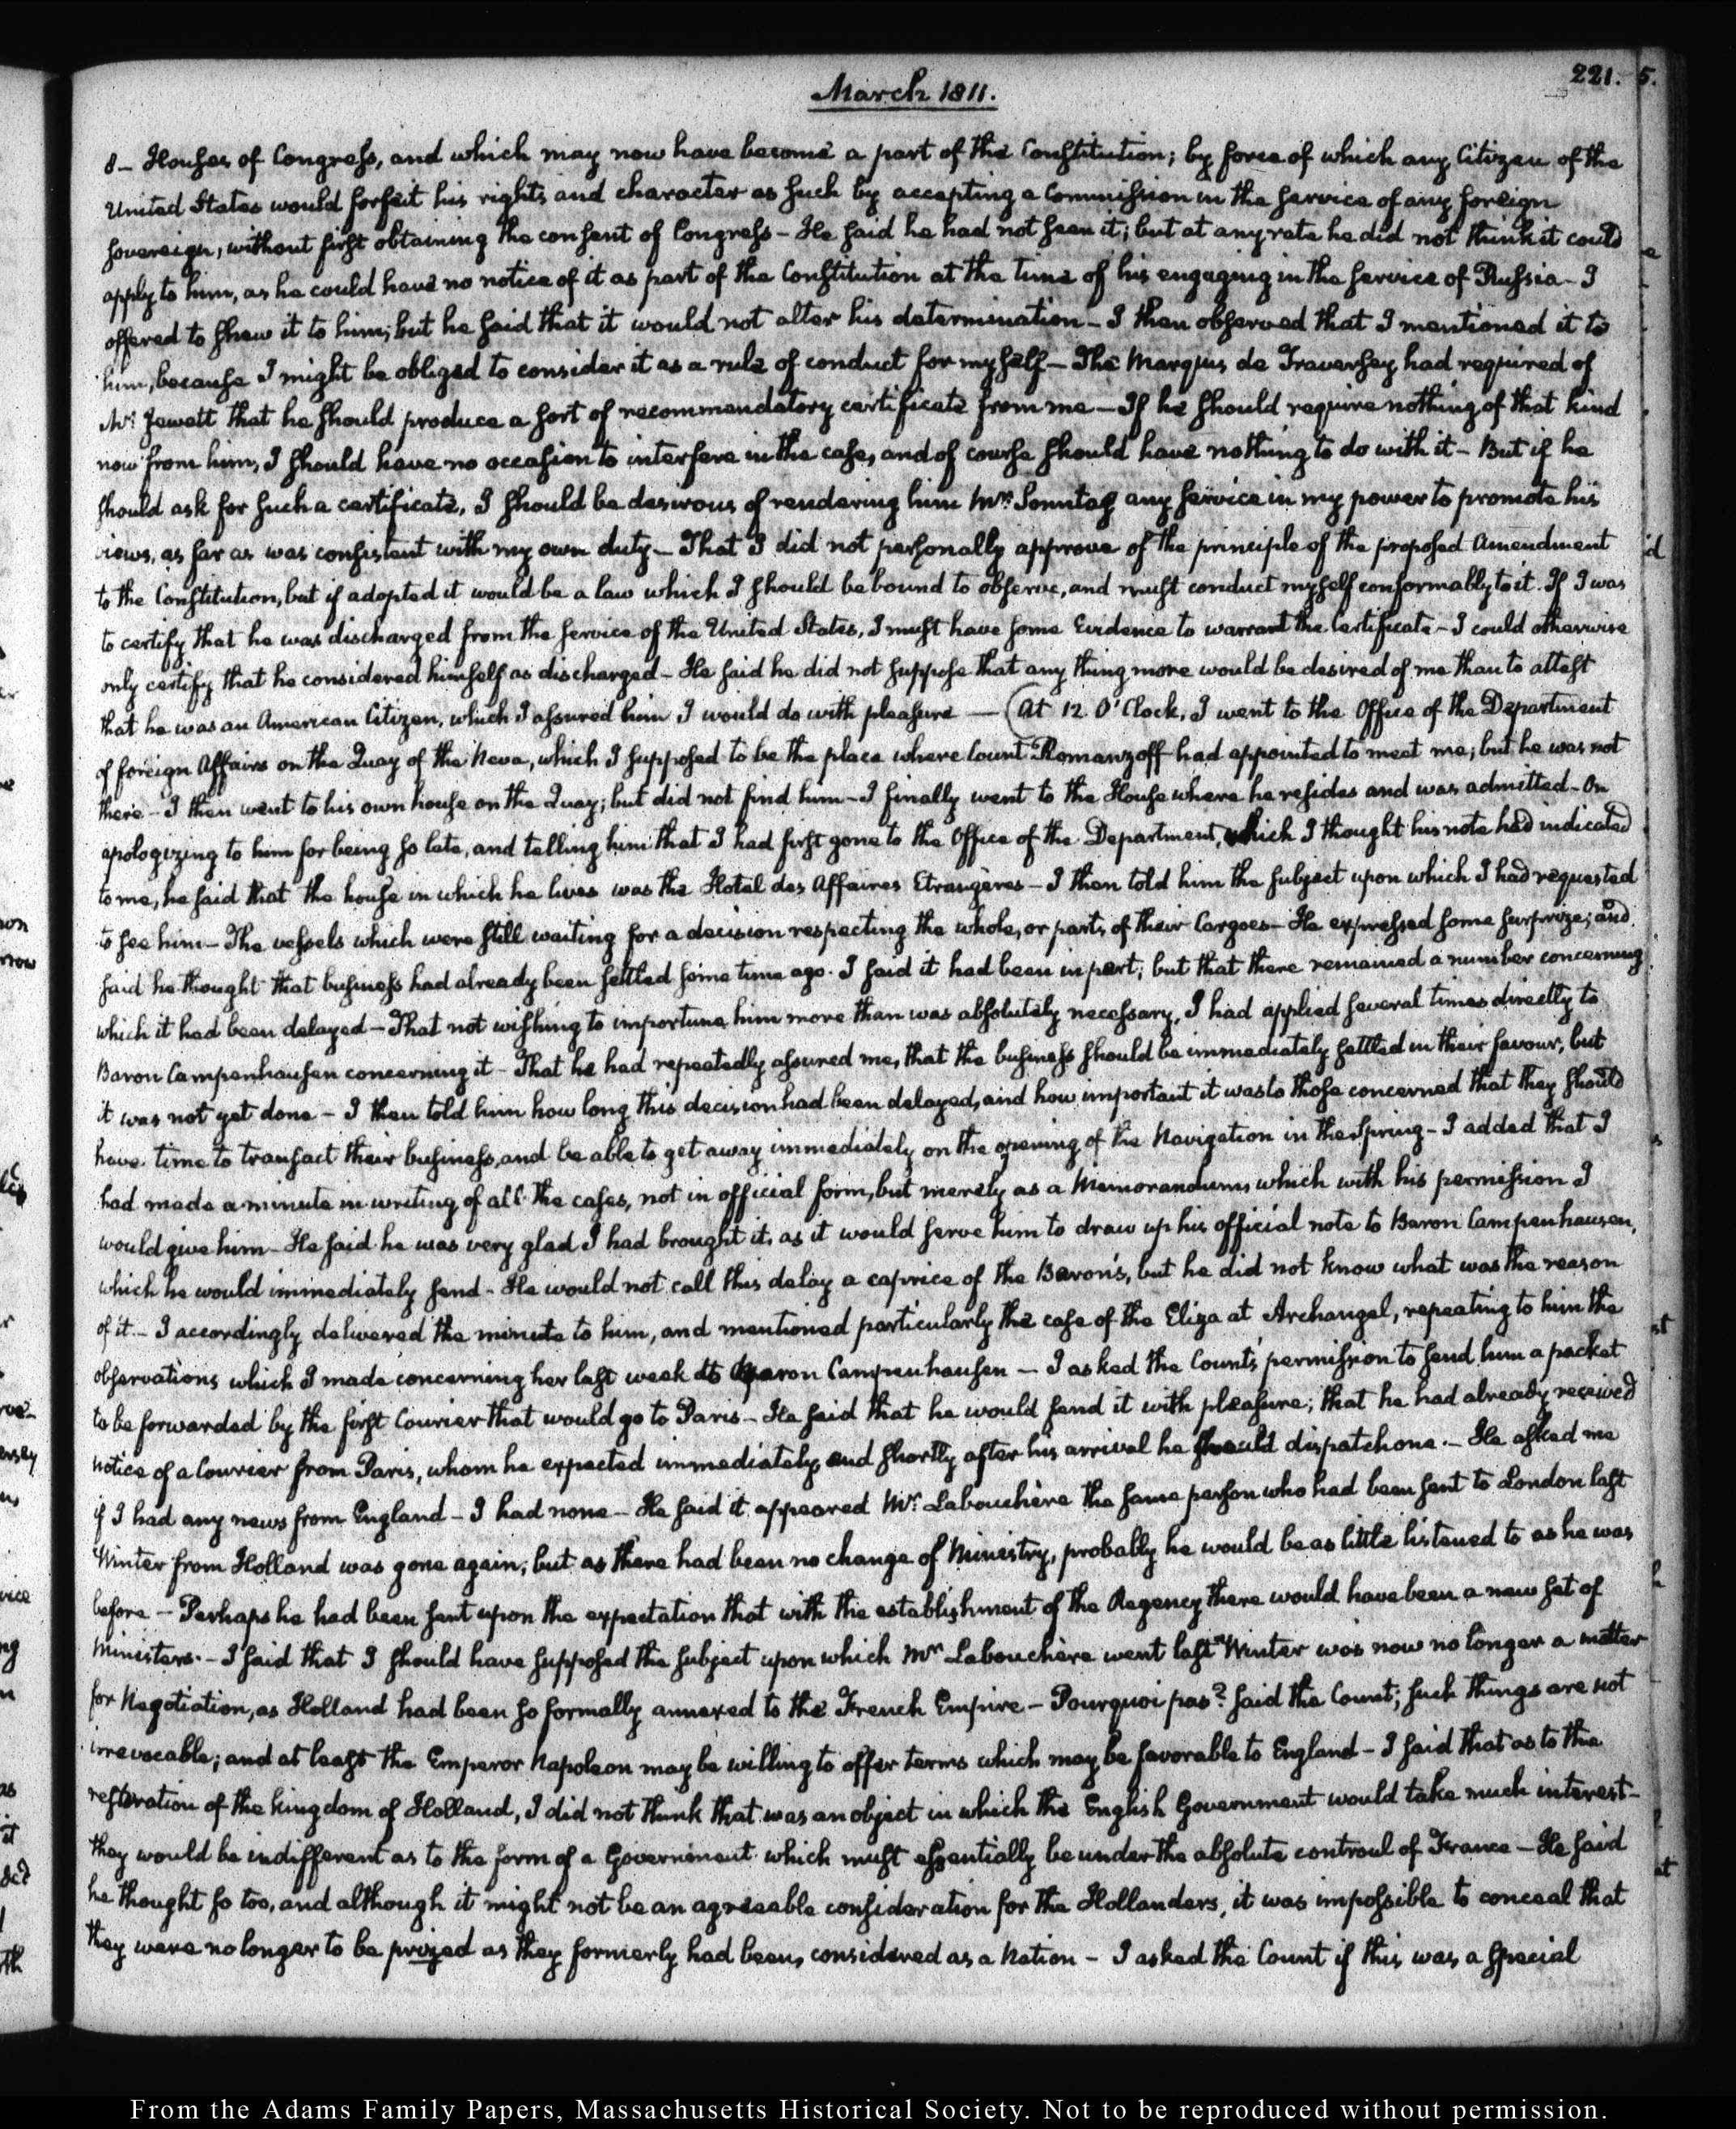 March 1811.
221.
8- Houses of Congress, and which may now have become a part of the Constitution; by force of which any Citizen of the
United States would forfeit his rights and character as such by accepting a Commission in the service of any foreign
sovereign, without first obtaining the consent of Congress - He said he had not seen it; but at any rate he did not think it could
apply to him, as he could have no notice of it as part of the Constitution at the time of his engaging in the service of Russia - I
offered to shew it to him; but he said that it would not alter his determination - I then observed that I mentioned it to
him, because I might be obliged to consider it as a rule of conduct for myself - The Marquis de Traversey had required of
Mr: Jewett that he should produce a sort of recommendatory certificate from me - If he should require nothing of that kind
now from him, I should have no occasion to interfere in the case, and of course should have nothing to do with it - But if he
should ask for such a certificate, I should be desirous of rendering him Mr: Sonntag any service in my power to promote his
views, as far as was consistent with my own duty - That I did not personally approve of the principle of the proposed Amendment
to the Constitution, but if adopted it would be a law which I should be bound to observe, and must conduct myself conformably to it. If I was
to certify that he was discharged from the service of the United States, I must have some Evidence to warrant the Certificate - I could otherwise
only certify that he considered himself as discharged - He said he did not suppose that any thing more would be desired of me than to attest
that he was an American Citizen, which I assured him I would do with pleasure — (At 12 O'Clock, I went to the Office of the Department
of foreign Affairs on the Quay of the Neva, which I supposed to be the place where Count Romanzoff had appointed to meet me; but he was not
there - I then went to his own house on the Quay; but did not find him - I finally went to the House where he resides and was admitted - On
apologizing to him for being so late, and telling him that I had first gone to the Office of the Department, which I thought his note had indicated
to me, he said that the house in which he lives was the Hotel des Affaires Etrangères - I then told him the subject upon which I had requested
to see him - The vessels which were still waiting for a decision respecting the whole, or parts of their Cargoes - He expressed some surprize; and
said he thought that business had already been settled some time ago. I said it had been in part; but that there remained a number concerning
which it had been delayed - That not wishing to importune him more than was absolutely necessary, I had applied several times directly to
Baron Campenhausen concerning it - That he had repeatedly assured me, that the business should be immediately settled in their favour, but
it was not yet done - I then told him how long this decision had been delayed, and how important it was to those concerned that they should
have time to transact their business, and be able to get away immediately on the opening of the Navigation in the Spring - I added that I
had made a minute in writing of all the cases, not in official form, but merely as a Memorandum, which with his permission I
would give him - He said he was very glad I had brought it, as it would serve him to draw up his official note to Baron Campenhausen,
which he would immediately send - He would not call this delay a caprice of the Baron's, but he did not know what was the reason
of it. - I accordingly delivered the minute to him, and mentioned particularly the case of the Eliza at Archangel, repeating to him the
observations which I made concerning her last week to Baron Campenhausen - I asked the Count's permission to send him a packet
to be forwarded by the first Courier that would go to Paris - He said that he would send it with pleasure; that he had already received
notice of a Courier from Paris, whom he expected immediately, and shortly after his arrival he should dispatch one. - He asked me
if I had any news from England - I had none - He said it appeared Mr: Labouchère the same person who had been sent to London last
Winter from Holland was gone again; but as there had been no change of Ministry, probably he would be as little listened to as he was
before - Perhaps he had been sent upon the expectation that with the establishment of the Regency there would have been a new set of
Ministers. - I said that I should have supposed the subject upon which Mr: Labouchère went last Winter was now no longer a matter
for Negotiation, as Holland had been so formally annexed to the French Empire - Pourquoi pas? said the Count; such things are not
irrevocable; and at least the Emperor Napoleon may be willing to offer terms which may be favorable to England - I said that as to the
restoration of the kingdom of Holland, I did not think that was an object in which the English Government would take much interest -
they would be indifferent as to the form of a Government which must essentially be under the absolute controul of France - He said
he thought so too, and although it might not be an agreeable consideration for the Hollanders, it was impossible to conceal that
they were no longer to be prized as they formerly had been, considered as a Nation - I asked the Count if this was a special
From the Adams Family Papers, Massachusetts Historical Society. Not to be reproduced without permission.